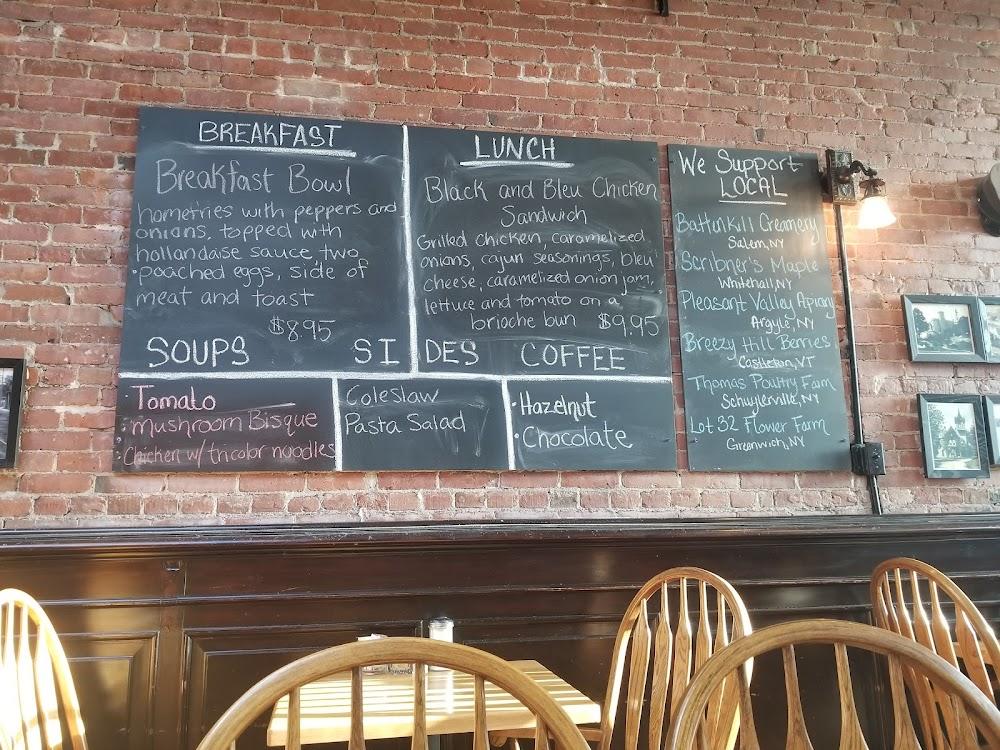 BREAKFAST
Breakfast Bowl
homefries with peppers and
onions, topped with
hollandaise sauce, two
poached eggs, side of
meat and toast
$8.95
LUNCH
Black and Bleu Chicken
Sandwich
Grilled chicken, caramelized
onions, cajun seasonings, bleu
cheese, caramelized onion jam,
lettuce and tomato on a
brioche bun $9.95
SOUPS
· Tomato
· mushroom Bisque
· Chicken w/ tricolor noodles
SIDES
Coleslaw
Pasta Salad
COFFEE
· Hazelnut
· Chocolate
We Support
LOCAL
Battenkill Creamery
Salem, NY
Scribner's Maple
Whitehall, NY
Pleasant Valley Apiary
Argyle, NY
Breezy Hill Berries
Castleton, VT
Thomas Poultry Farm
Schuylerville, NY
Lot 32 Flower Farm
Greenwich, NY